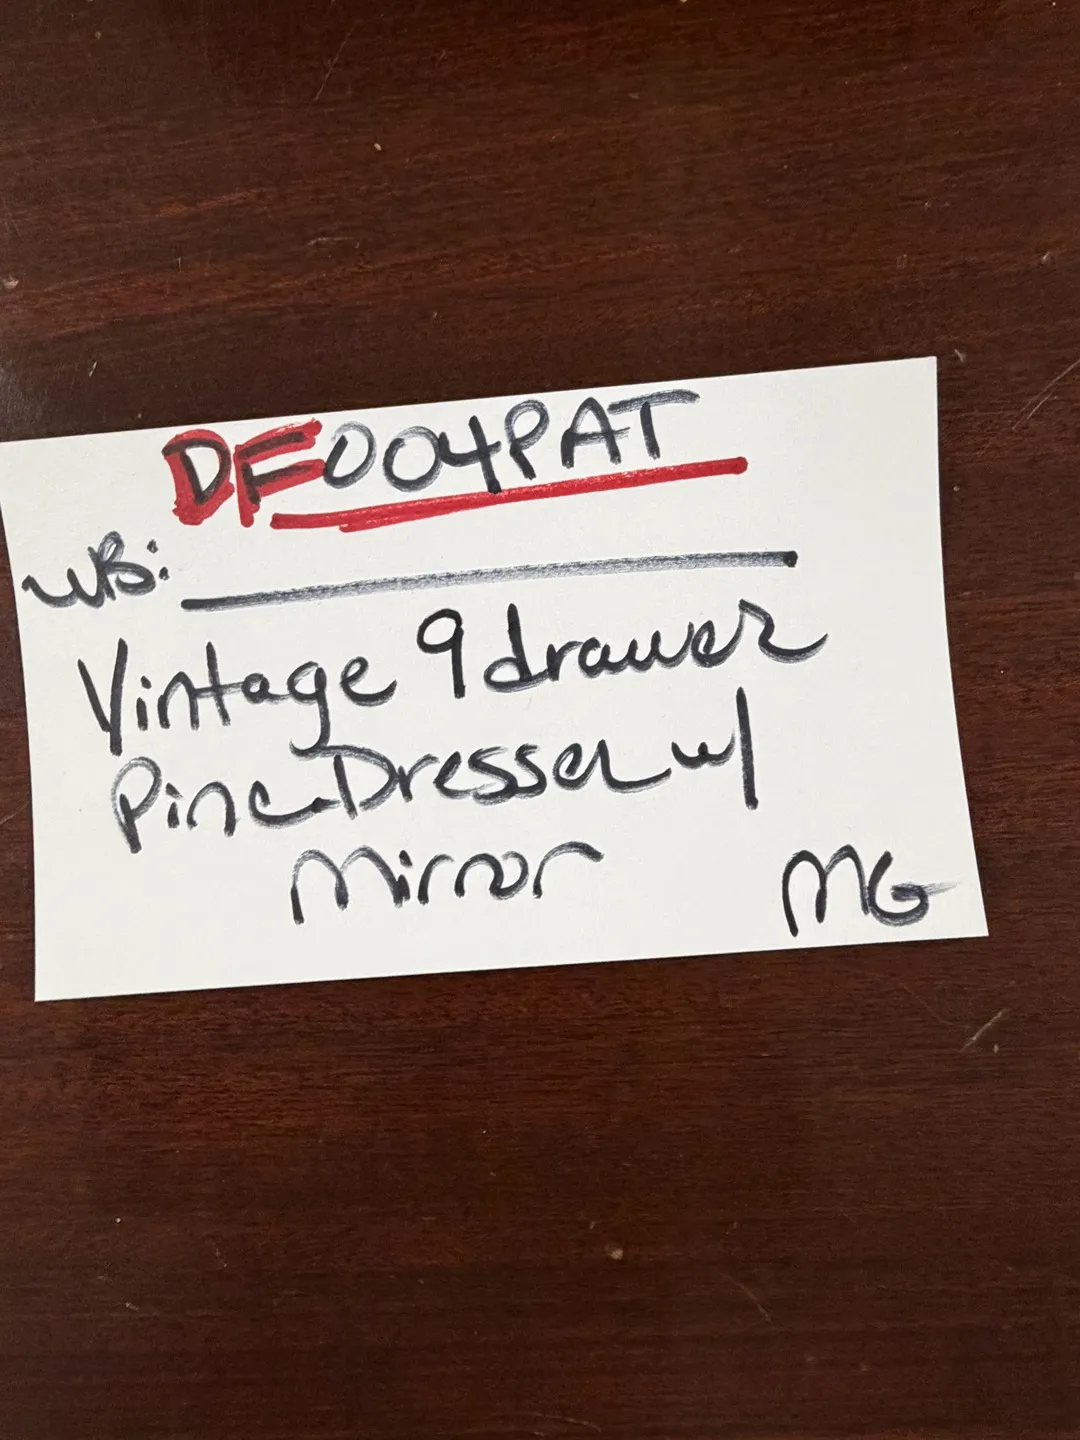 DF004PAT
WB:
Vintage 9 drawer
Pine Dresser w/
Mirror MG